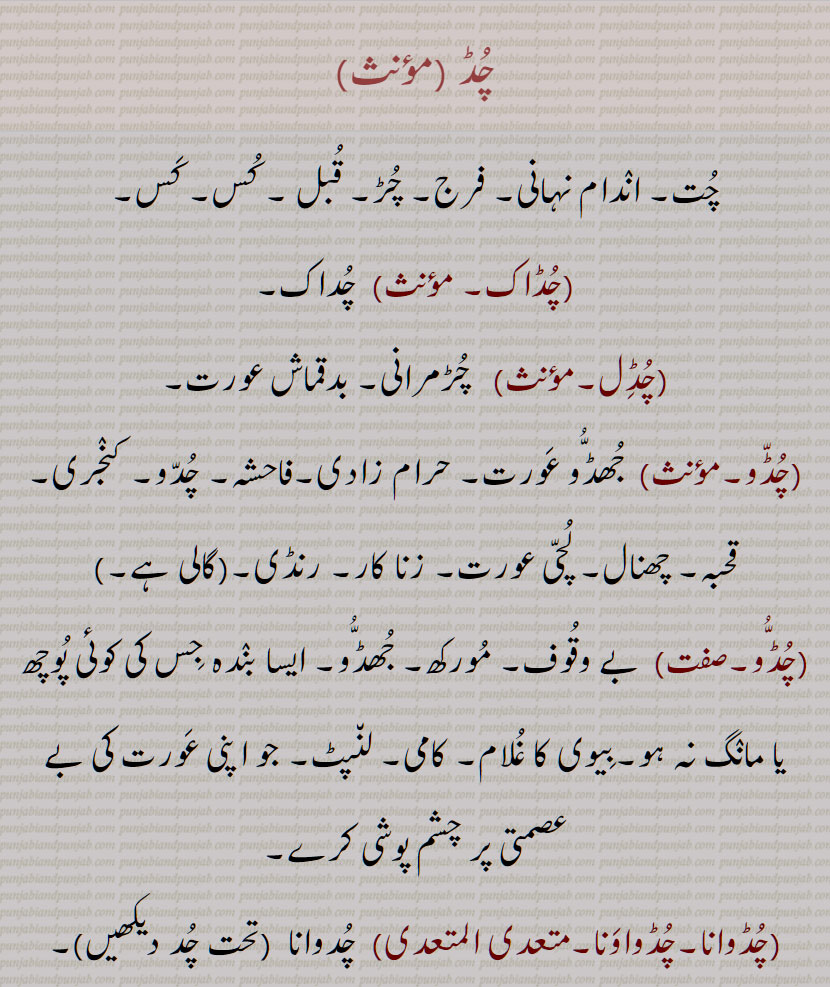 چُڈ (مؤنث)
چُت۔ انْدام نہانی۔ فرج۔ چُڑ۔ قُبل ۔ کُس۔ کَس۔
(چُڈاک۔ مؤنث) چُداک۔
(چُڈِل۔مؤنث) چُڑمرانی۔ بدقماش عورت۔
(چُڈّو۔مؤنث) جُھڈُّو عَورت۔ حرام زادی۔فاحشہ۔ چُدّو۔ کنْجری۔
قحبہ۔ چھنال۔ لُچّی عورت۔ زنا کار۔ رنڈی۔(گالی ہے۔)
(چُڈُّو۔صفت) بے وقُوف۔ مُورکھ۔ جُھڈُّو۔ ایسا بنْدہ جِس کی کوئی پُوچھ
یا مانْگ نہ ہو۔بِیوی کا غُلام۔ کامی۔ لنّپٹ۔ جو اپنی عَورت کی بے
عصمتی پر چشم پوشی کرے۔
(چُڈوانا۔چُڈواوَنا۔متعدی المتعدی) چُدوانا (تحت چُد دیکھیں)۔